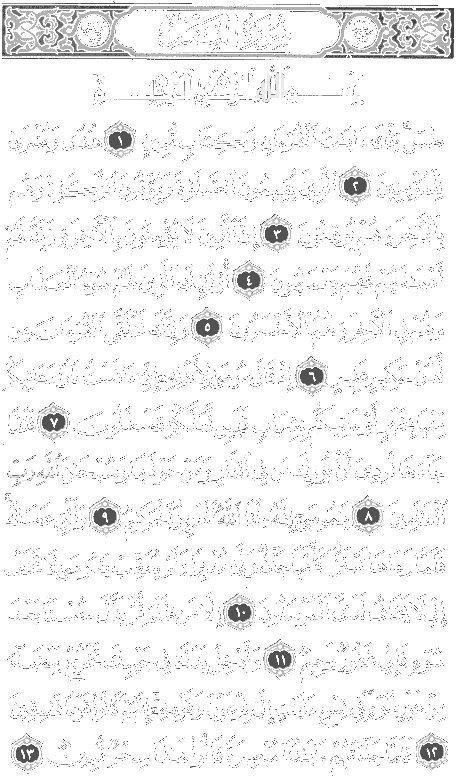 سُورَةُ النَّمْلِ
بِسْمِ ٱللَّهِ ٱلرَّحْمَٰنِ ٱلرَّحِيمِ
طسٓ تِلْكَ ءَايَٰتُ ٱلْقُرْءَانِ وَكِتَابٍ مُّبِينٍ ١ هُدًى وَبُشْرَىٰ
لِلْمُؤْمِنِينَ ٢ ٱلَّذِينَ يُقِيمُونَ ٱلصَّلَوٰةَ وَيُؤْتُونَ ٱلزَّكَوٰةَ وَهُم
بِٱلْءَاخِرَةِ هُمْ يُوقِنُونَ ٣ إِنَّ ٱلَّذِينَ لَا يُؤْمِنُونَ بِٱلْءَاخِرَةِ زَيَّنَّا لَهُمْ
أَعْمَٰلَهُمْ فَهُمْ يَعْمَهُونَ ٤ أُوْلَٰٓئِكَ ٱلَّذِينَ لَهُمْ سُوٓءُ ٱلْعَذَابِ
وَهُمْ فِى ٱلْءَاخِرَةِ هُمُ ٱلْأَخْسَرُونَ ٥ وَإِنَّكَ لَتُلَقَّى ٱلْقُرْءَانَ مِن
لَّدُنْ حَكِيمٍ عَلِيمٍ ٦ إِذْ قَالَ مُوسَىٰ لِأَهْلِهِۦٓ إِنِّىٓ ءَانَسْتُ نَارًا سَـَٔاتِيكُم
مِّنْهَا بِخَبَرٍ أَوْ ءَاتِيكُم بِشِهَابٍ قَبَسٍ لَّعَلَّكُمْ تَصْطَلُونَ ٧ فَلَمَّا
جَآءَهَا نُودِىَ أَنۢ بُورِكَ مَن فِى ٱلنَّارِ وَمَنْ حَوْلَهَا وَسُبْحَٰنَ ٱللَّهِ رَبِّ
ٱلْعَٰلَمِينَ ٨ يَٰمُوسَىٰٓ إِنَّهُۥٓ أَنَا ٱللَّهُ ٱلْعَزِيزُ ٱلْحَكِيمُ ٩ وَأَلْقِ عَصَاكَ
فَلَمَّا رَءَاهَا تَهْتَزُّ كَأَنَّهَا جَآنٌّ وَلَّىٰ مُدْبِرًا وَلَمْ يُعَقِّبْ يَٰمُوسَىٰ لَا تَخَفْ
إِنِّى لَا يَخَافُ لَدَىَّ ٱلْمُرْسَلُونَ ١٠ إِلَّا مَن ظَلَمَ ثُمَّ بَدَّلَ حُسْنًۢا بَعْدَ
سُوٓءٍ فَإِنِّى غَفُورٌ رَّحِيمٌ ١١ وَأَدْخِلْ يَدَكَ فِى جَيْبِكَ تَخْرُجْ بَيْضَآءَ
مِنْ غَيْرِ سُوٓءٍ فِى تِسْعِ ءَايَٰتٍ إِلَىٰ فِرْعَوْنَ وَقَوْمِهِۦٓ إِنَّهُمْ كَانُوا۟ قَوْمًا فَٰسِقِينَ
١٢ فَلَمَّا جَآءَتْهُمْ ءَايَٰتُنَا مُبْصِرَةً قَالُوا۟ هَٰذَا سِحْرٌ مُّبِينٌ ١٣